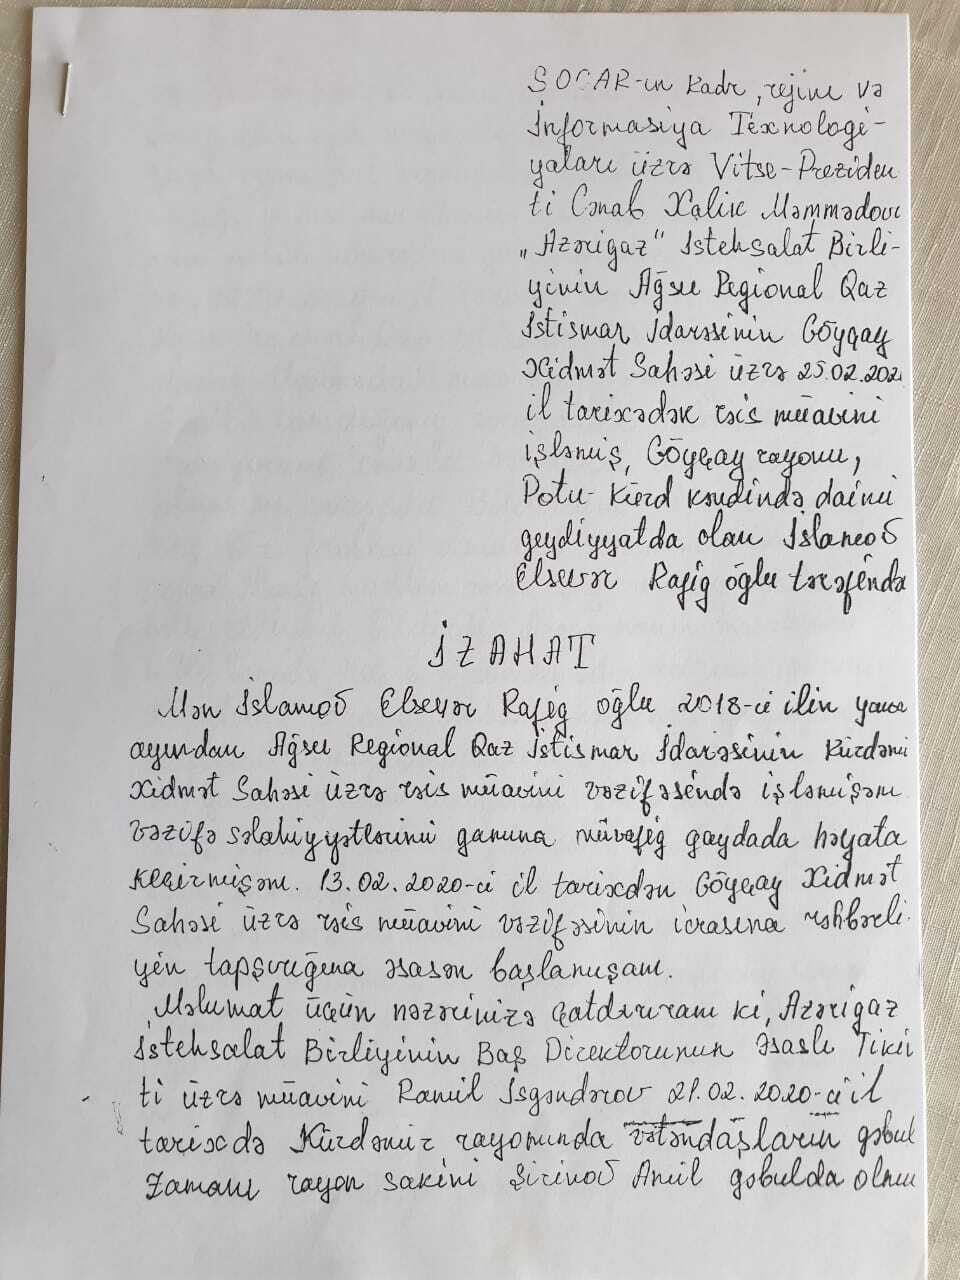 SOCAR-ın Kadr, rejim və
İnformasiya Texnologi-
yaları üzrə Vitse-Preziden
ti Cənab Xalik Məmmədov
„Azərigaz" Istehsalat Birli-
yinin Ağsu Regional Qaz
Istismar İdarəsinin Göyçay
Xidmət Sahəsi üzrə 25.02.202
il tarixədək rəis müavini
işləmiş, Göyçay rayonu,
Potu-Kürd kəndində daimi
qeydiyyatda olan İslamov
Elsevər Rafig oğlu tərəfində
İZAHAT
Mən İslamov Elsevər Rafig oğlu 2018-ci ilin yanva
ayından Ağsu Regional Qaz İstismar İdarəsinin Kürdəmi
Xidmət Sahəsi üzrə rəis müavini vəzifəsində işləmişəm
vəzifə səlahiyyətlərimi ganuna müvafig gaydada həyata
keçirmişəm. 13.02.2020-ci il tarixdən Göyçay Xidmət
Sahəsi üzrə rəis müavini vəzifəsinin icrasına rəhbərli-
yin tapşırığına əsasən başlamışam.
Məlumat üçün nəzərinizə çatdırıram ki, Azərigaz
İstehsalat Birliyinin Baş Direktorunun Əsaslı Tikin
ti üzrə müavini Ramil İsgəndərov 21.02.2020-ci il
tarixdə Kürdəmir rayonunda vətəndaşların gəbul
zamanı rayon sakini Şirinov Amil gəbulda olmu